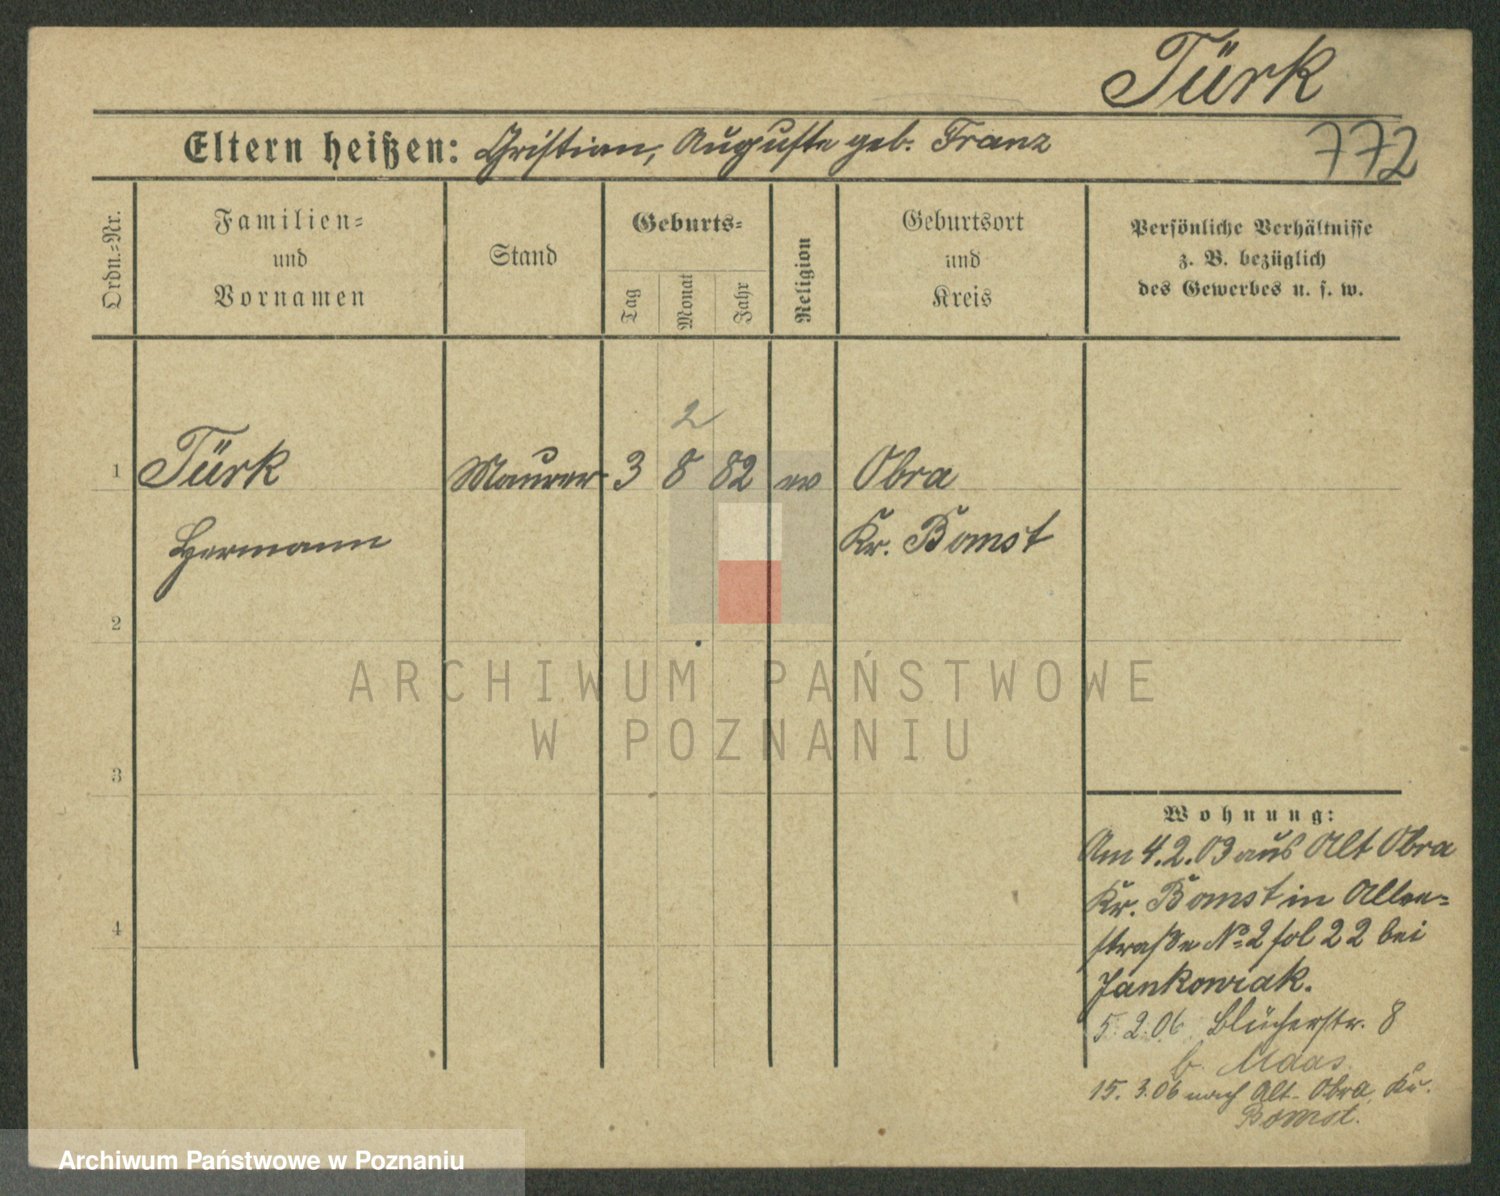 Türk
Eltern heißen: Christian, Auguste geb. Franz
772
Ordn.-Nr.
Familien-
und
Vornamen
Stand
Geburts-
Tag
Monat
Jahr
Religion
Geburtsort
und
Kreis
Persönliche Verhältnisse
z. B. bezüglich
des Gewerbes u. s. w.
2
1 Türk Maurer 3 8 82 ev Obra
Hermann Kr. Bomst
2
3
4
ARCHIWUM PAŃSTWOWE
W POZNANIU
Wohnung:
Am 4.2.03 aus Alt Obra
Kr. Bomst in Allee-
straße No 2 fol 22 bei
Jankowiak.
5.2.06 Blücherstr. 8
b. Maas
15.3.06 nach Alt-Obra, Kr.
Bomst.
Archiwum Państwowe w Poznaniu